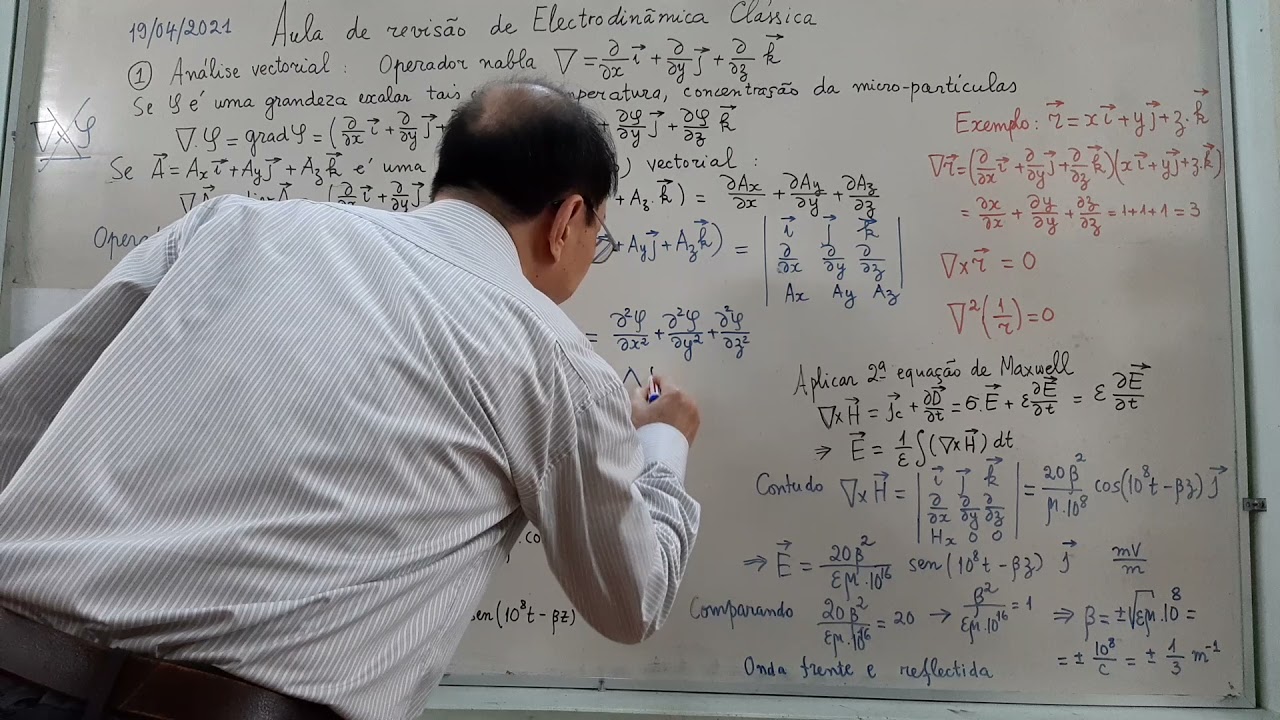 19/04/2021 Aula de revisão de Electrodinâmica Clássica
① Análise vectorial : Operador nabla ∇ = ∂/∂x i⃗ + ∂/∂y j⃗ + ∂/∂z k⃗
Se φ é uma grandeza exalar tais mperatura, concentração da micro-partículas
∇×φ
∇.φ = gradφ = (∂/∂x i⃗ + ∂/∂y j⃗ + ∂φ/∂y j⃗ + ∂φ/∂z k⃗
Se A⃗ = Ax i⃗ + Ay j⃗ + Az k⃗ é uma ) vectorial :
(∂/∂x i⃗ + ∂/∂y j⃗ + Az.k⃗) = ∂Ax/∂x + ∂Ay/∂y + ∂Az/∂z
Opera + Ay j⃗ + Az k⃗) = | i⃗ j⃗ k⃗ |
| ∂/∂x ∂/∂y ∂/∂z |
| Ax Ay Az |
= ∂²φ/∂x² + ∂²φ/∂y² + ∂²φ/∂z²
sen(10⁸t − βz)
Exemplo: r⃗ = x i⃗ + y j⃗ + z.k⃗
∇r⃗ = (∂/∂x i⃗ + ∂/∂y j⃗ + ∂/∂z k⃗)(x i⃗ + y j⃗ + z.k⃗)
= ∂x/∂x + ∂y/∂y + ∂z/∂z = 1+1+1 = 3
∇×r⃗ = 0
∇²(1/r) = 0
Aplicar 2ª equação de Maxwell
∇×H⃗ = j⃗c + ∂D⃗/∂t = σ.E⃗ + ε ∂E⃗/∂t = ε ∂E⃗/∂t
⇒ E⃗ = 1/ε ∫(∇×H⃗) dt
Contudo ∇×H⃗ = | i⃗ j⃗ k⃗ | = 20β²/μ.10⁸ cos(10⁸t − βz) j⃗
| ∂/∂x ∂/∂y ∂/∂z |
| Hx 0 0 |
⇒ E⃗ = 20β²/εμ.10¹⁶ sen(10⁸t − βz) j⃗ mV/m
Comparando 20β²/εμ.10¹⁶ = 20 → β²/εμ.10¹⁶ = 1 ⇒ β = ±√εμ.10⁸ =
= ± 10⁸/c = ± 1/3 m⁻¹
Onda frente e reflectida